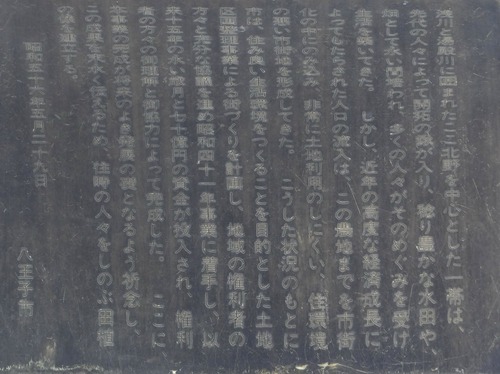 浅川と湯殿川に囲まれたここ北野を中心とした一帯は、
先代の人々によって開拓の鍬が入り、稔り豊かな水田や、
畑として永い間耕われ、多くの人々がそのめぐみを受け
生活を築いてきた。しかし、近年の高度な経済成長に
よってもたらされた人口の流入は、この農地までを市街
化の中にのみ込み、非常に土地利用のしにくい、住環境
の悪い市街地を形成してきた。こうした状況のもとに
市は、住み良い生活環境をつくることを目的とした土地
区画整理事業による街づくりを計画し、地域の権利者の
方々と充分な論議を進め昭和四十一年事業に着手し、以
来十五年の永い歳月と七十億円の資金が投入され、権利
者の方々の御理解と御協力によって完成した。ここに
本事業の完成が将来のよき発展の礎となるよう祈念し、
この成果を末永く伝えるため、往時の人々をしのぶ
の像を建立する。
昭和五十六年五月二十九日
八王子市